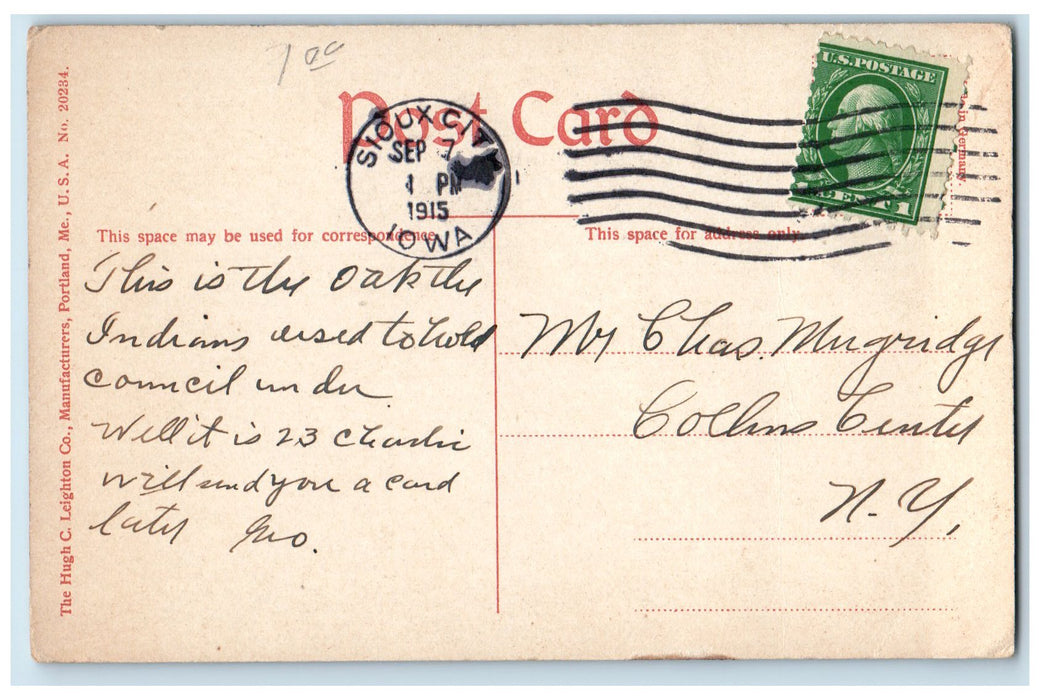 1 00
Post Card
SIOUX CITY
SEP 7
1 PM
1915
IOWA
U.S. POSTAGE
CENT 1
in Germany.
The Hugh C. Leighton Co., Manufacturers, Portland, Me., U. S. A. No. 20234.
This space may be used for correspondence
This space for address only
This is the oak the
Indians used to hold
council under
Well it is 23 Charlie
will send you a card
later Geo.
Mr Chas. Mugridge
Collins Center
N. Y.